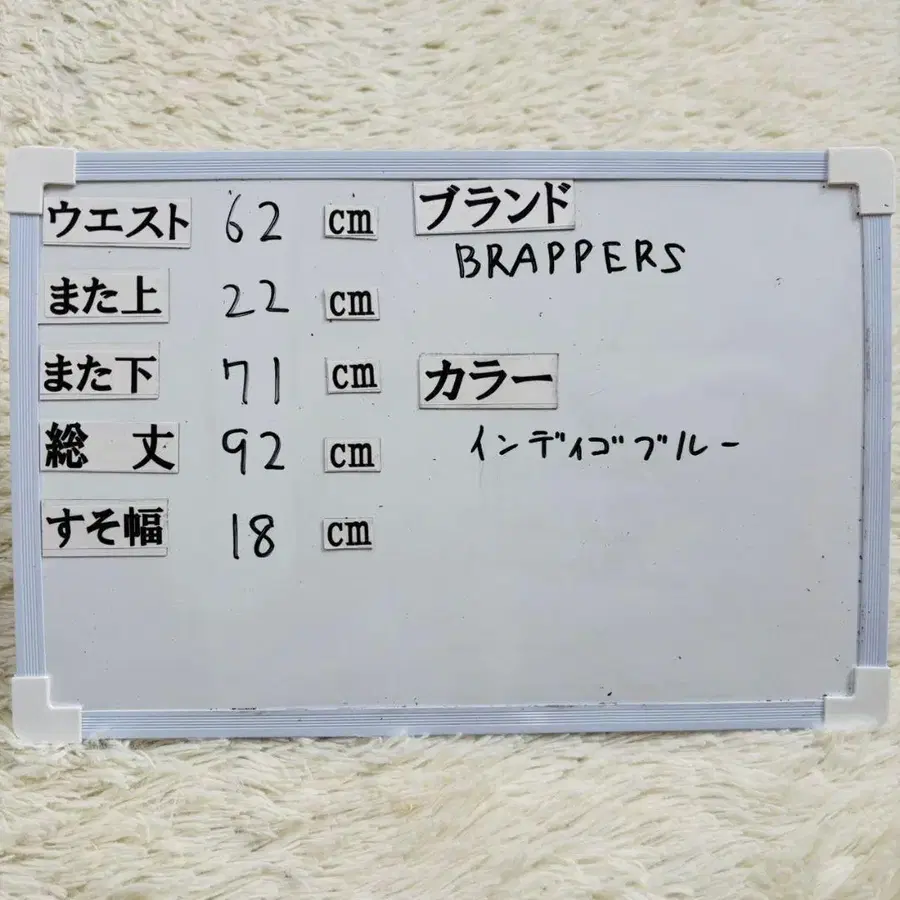 ウエスト 62 cm
また上 22 cm
また下 71 cm
総 丈 92 cm
すそ幅 18 cm
ブランド
BRAPPERS
カラー
インディゴブルー